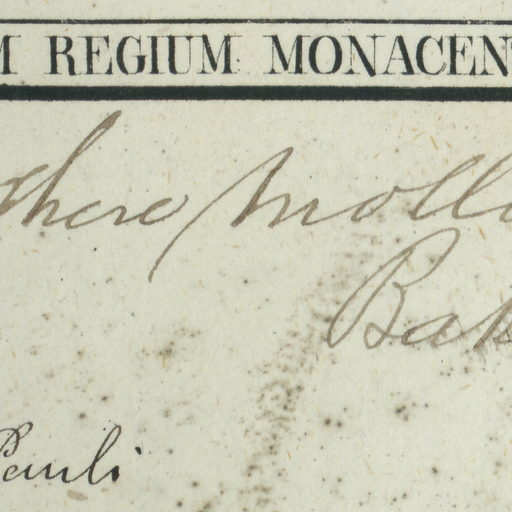 M REGIUM MONACEN
Moll
Bak
Pauli